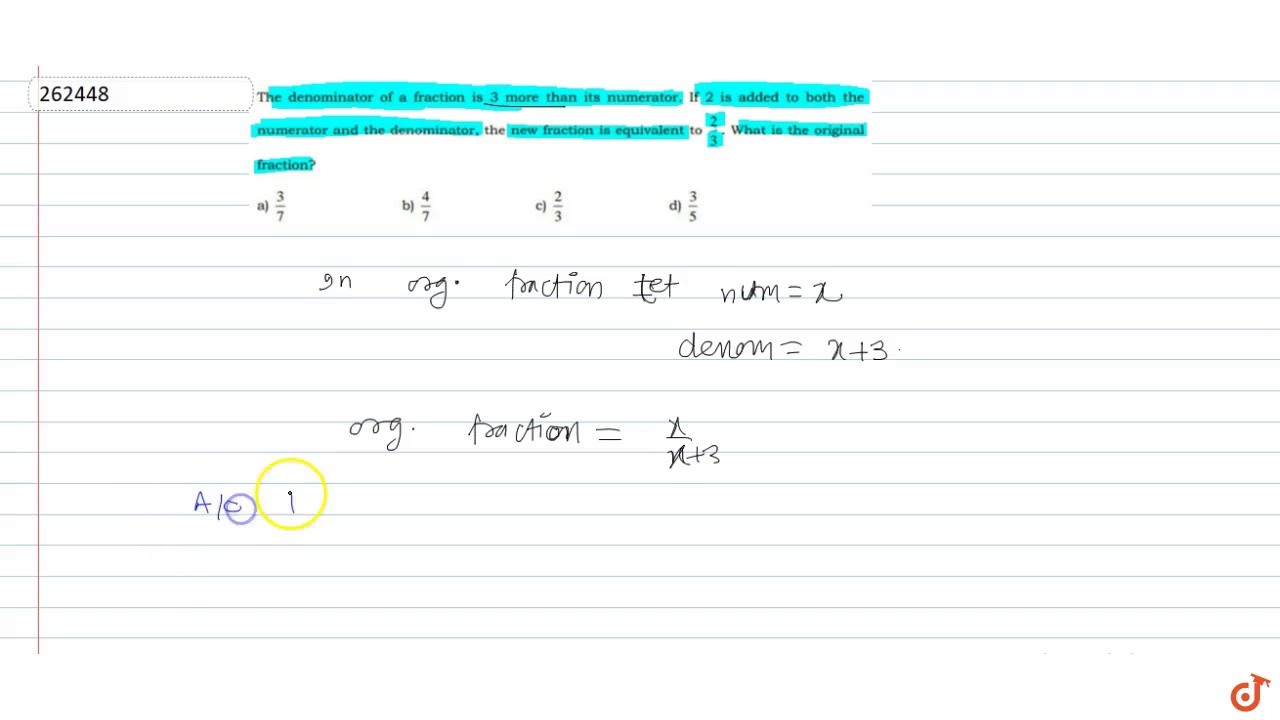 262448
The denominator of a fraction is 3 more than its numerator. If 2 is added to both the
numerator and the denominator, the new fraction is equivalent to 2/3. What is the original
fraction?
a) 3/7 b) 4/7 c) 2/3 d) 3/5
In org. fraction let num = x
denom = x+3
org. fraction = x/x+3
A/c